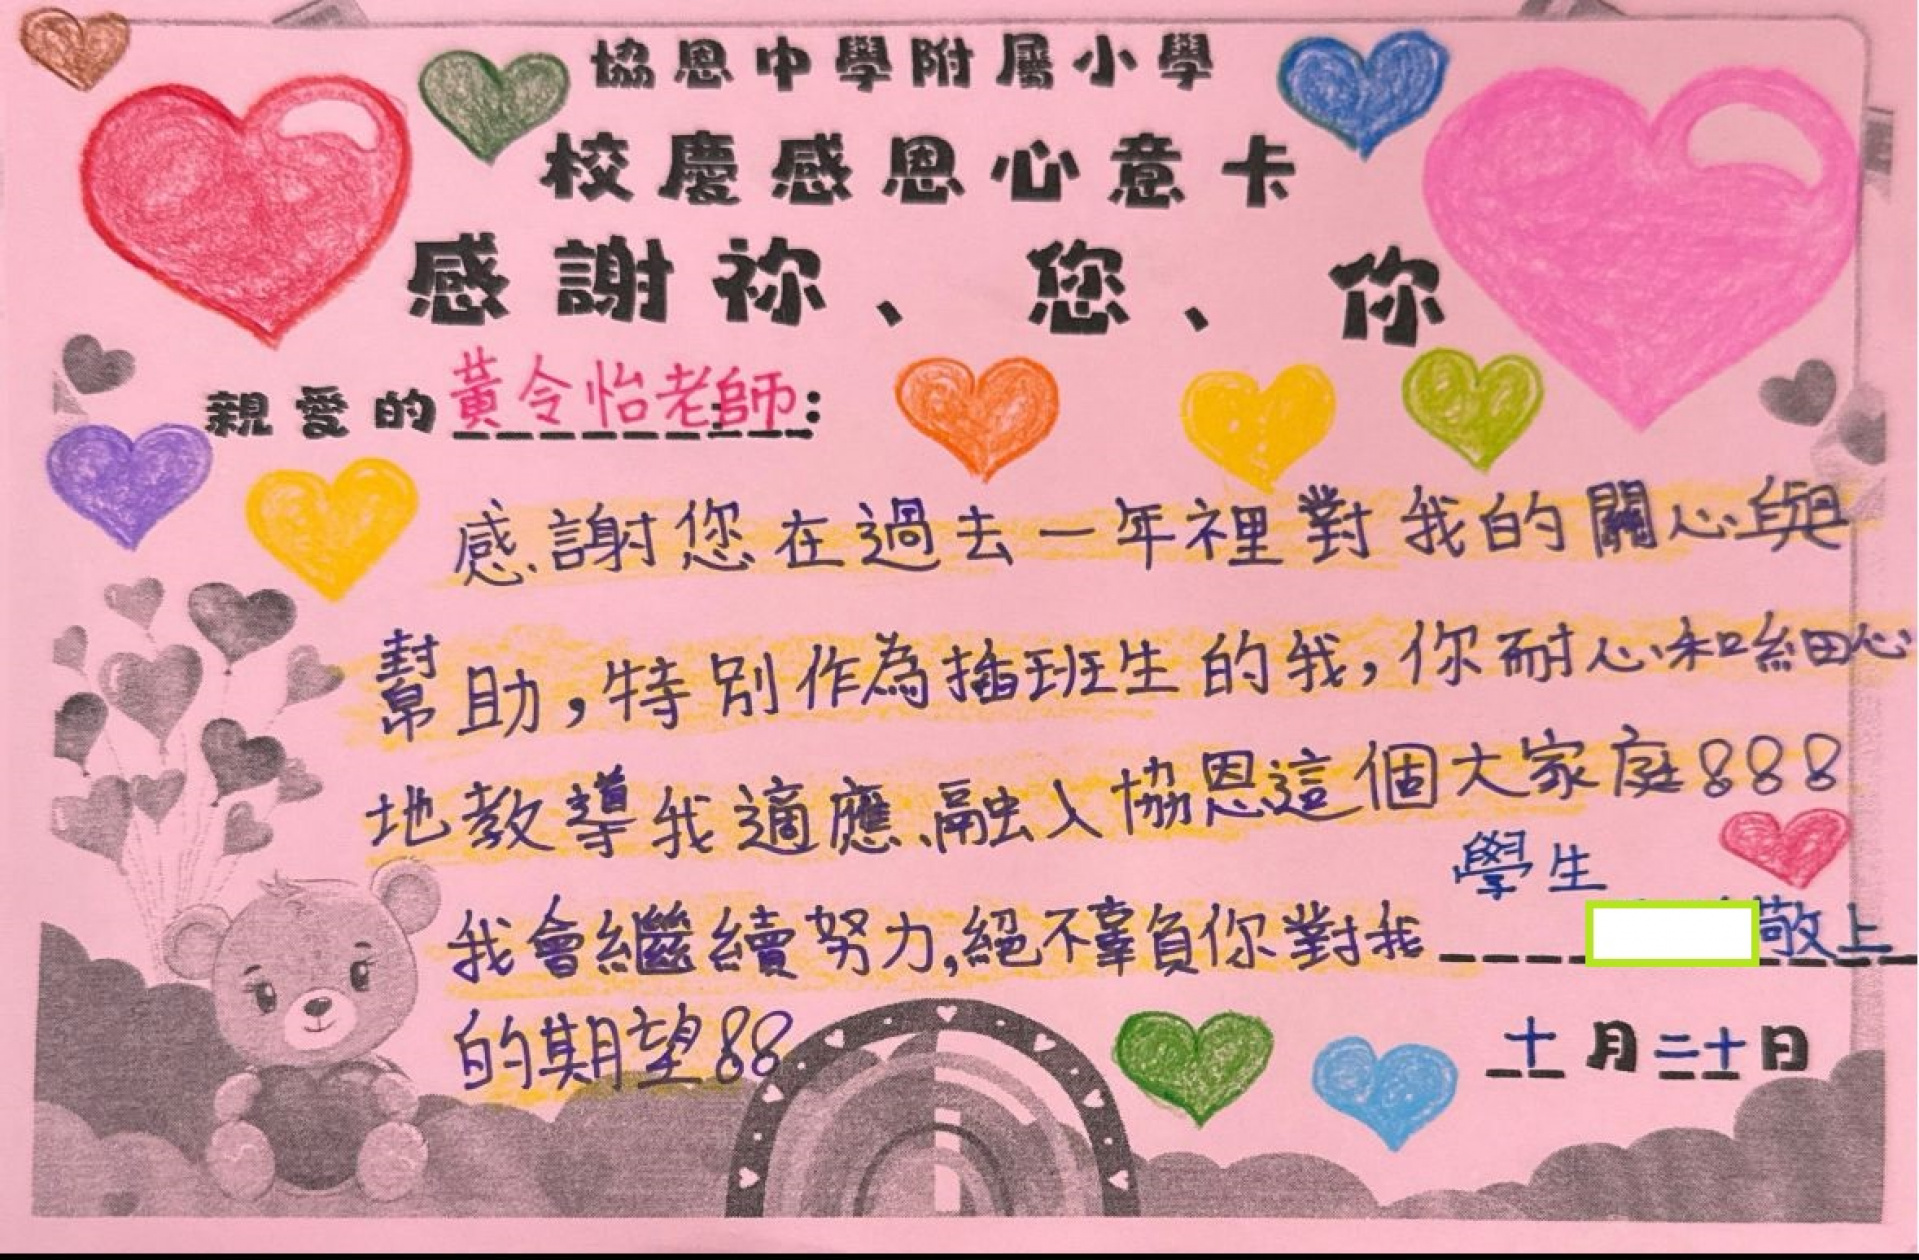 協恩中學附屬小學
校慶感恩心意卡
感謝祢、您、你
親愛的黃令怡老師:
感謝您在過去一年裡對我的關心與
幫助,特別作為插班生的我,你耐心和細心
地教導我適應、融入協恩這個大家庭888
學生
我會繼續努力,絕不辜負你對我
敬上
的期望88
十月二十日